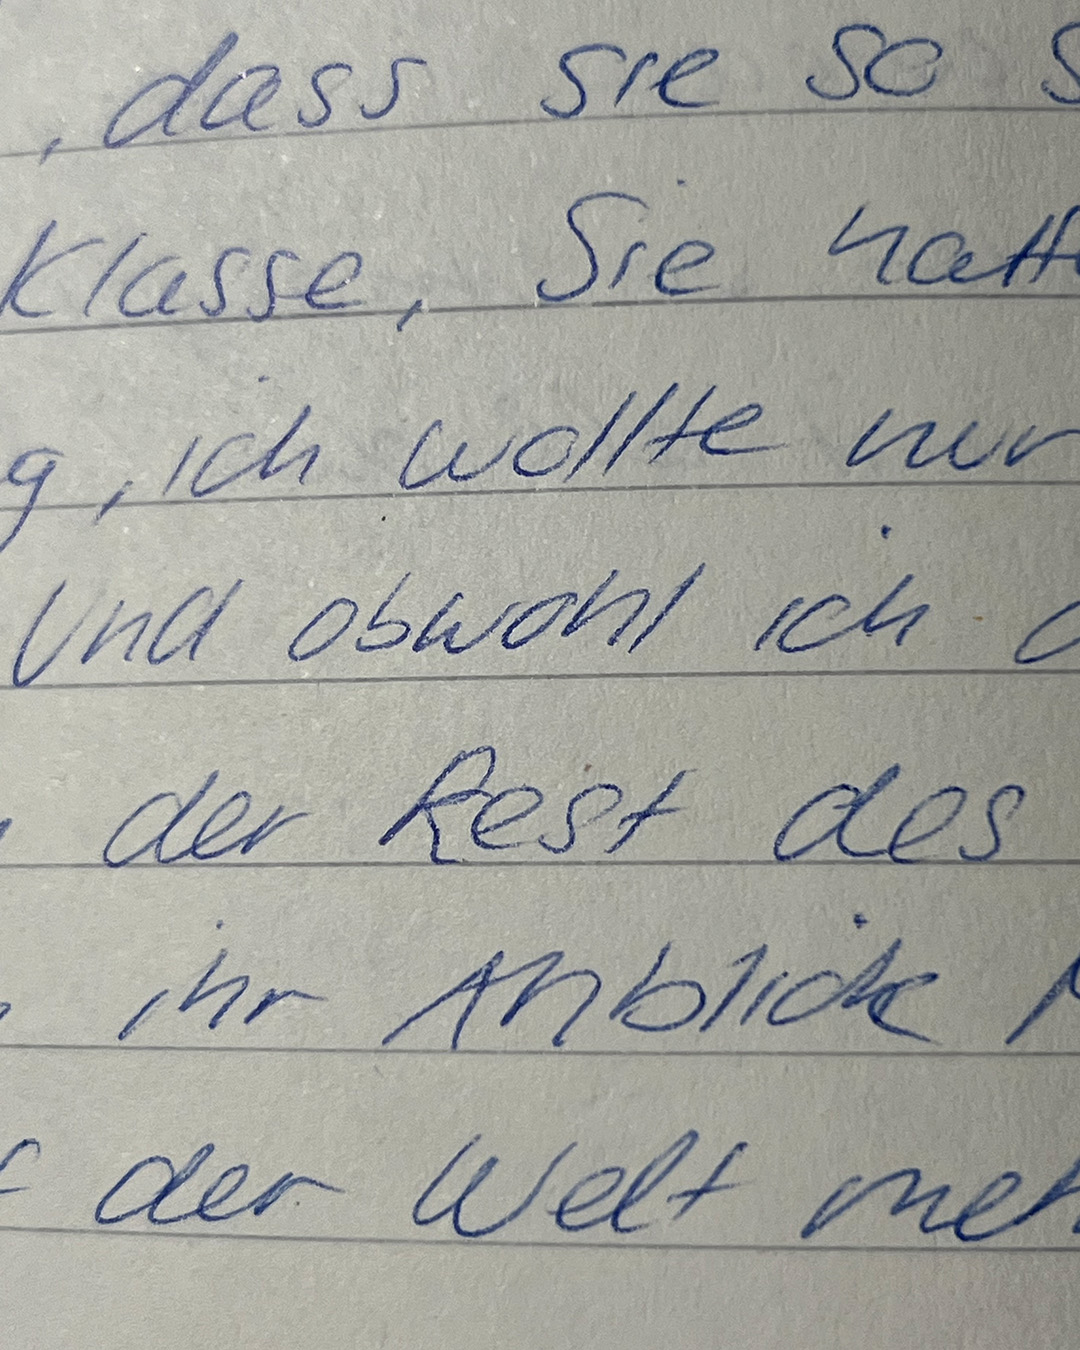 , dass sie so
Klasse, Sie
, ich wollte nur
Und obwohl ich
der Rest des
ihr Anblick
der Welt